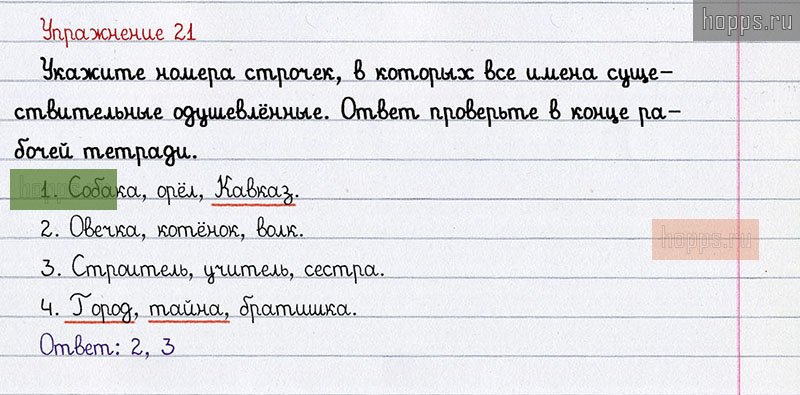 hopps.ru
Упражнение 21
Укажите номера строчек, в которых все имена суще-
ствительные одушевлённые. Ответ проверьте в конце ра-
бочей тетради.
1. Собака, орёл, Кавказ.
2. Овечка, котёнок, волк.
hopps.ru
3. Строитель, учитель, сестра.
4. Город, тайна, братишка.
Ответ: 2, 3